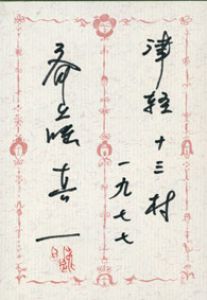 津軽十三村
一九七七
斎藤真一